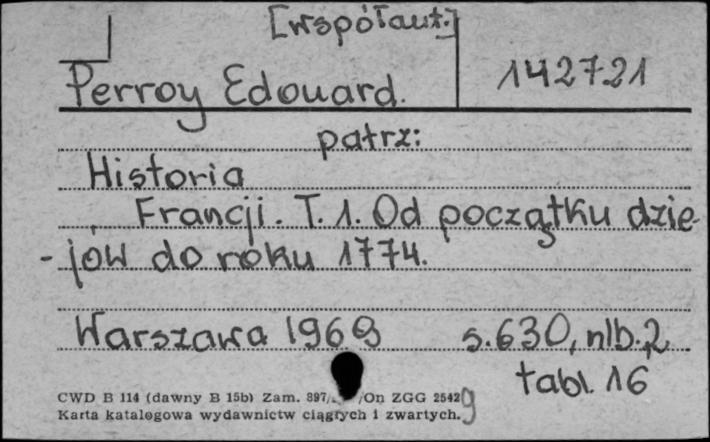 [współaut.]
Perroy Edouard.
142721
patrz:
Historia
Francji. T. 1. Od początku dzie-
-jów do roku 1774.
Warszawa 1969 s. 630, nlb. 2
tabl. 16
CWD B 114 (dawny B 15b) Zam. 897/ /On ZGG 2542 9
Karta katalogowa wydawnictw ciągłych i zwartych.